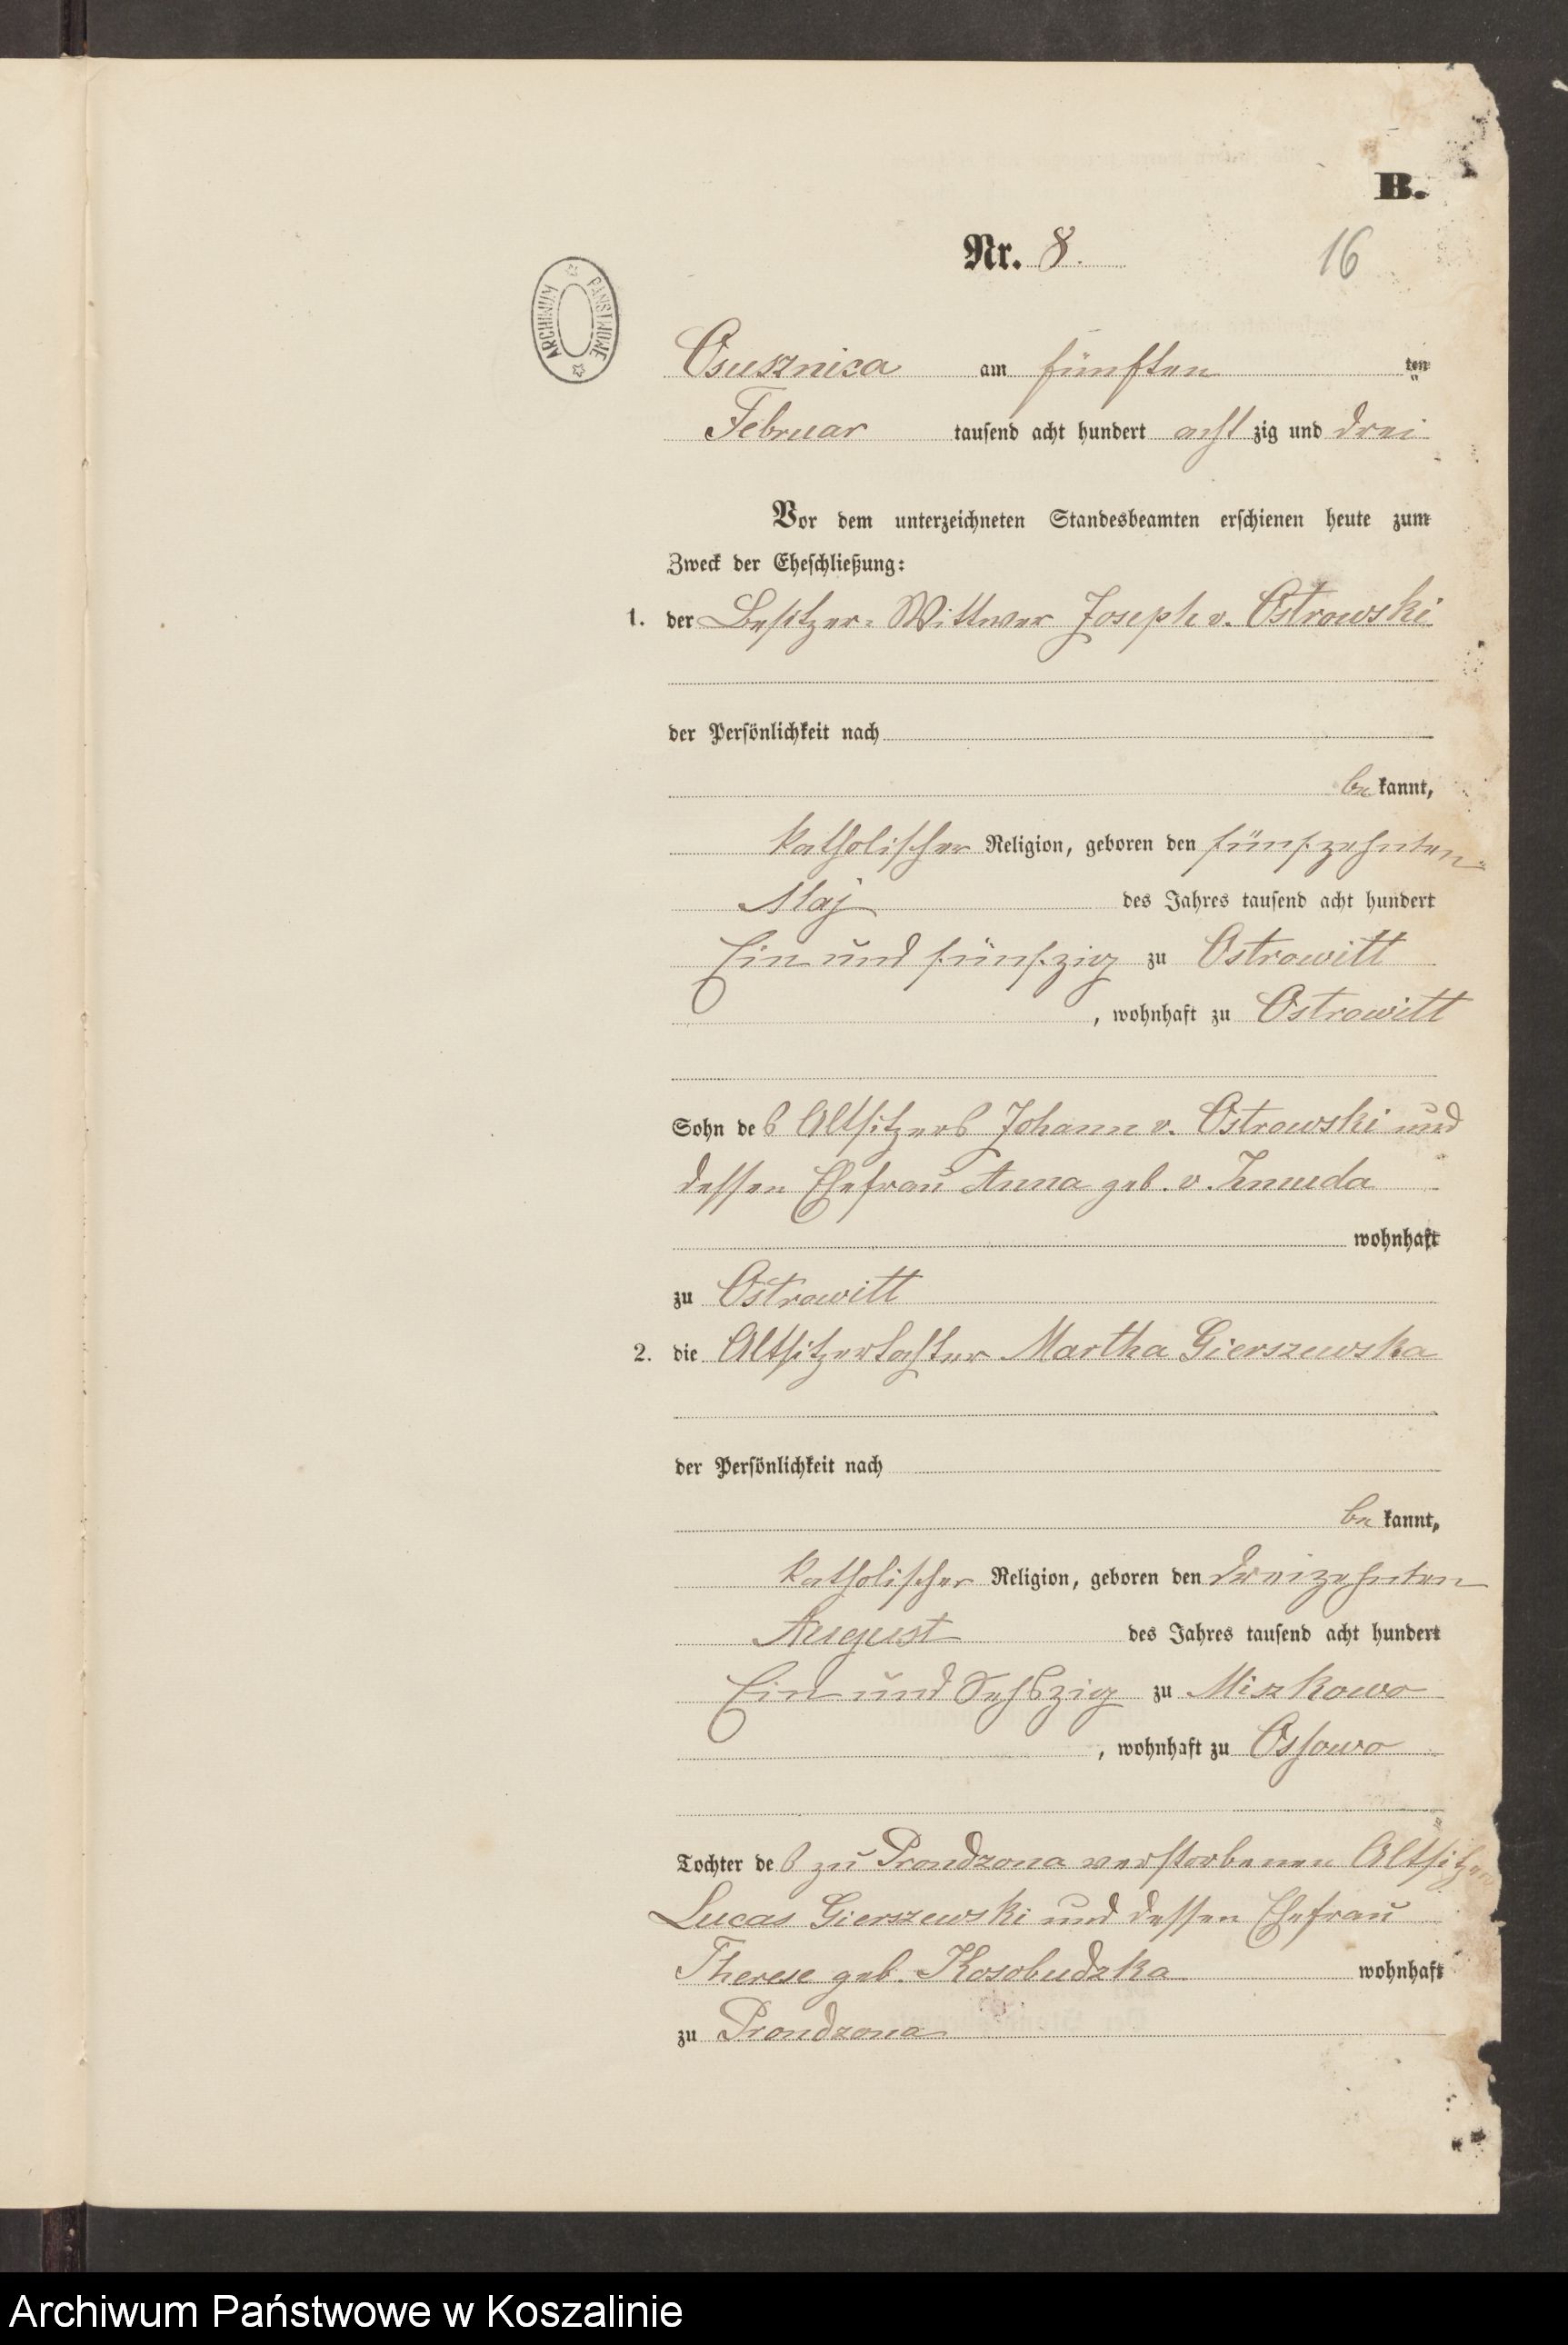 B.
Nr. 8.
16
ARCHIWUM PAŃSTWOWE
Osusznica am fünften ten
Februar tausend acht hundert acht zig und drei
Vor dem unterzeichneten Standesbeamten erschienen heute zum
Zweck der Eheschließung:
1. der Besitzer-Wittwer Joseph v. Ostrowski
der Persönlichkeit nach
be kannt,
katholischer Religion, geboren den fünfzehnten
Maj des Jahres tausend acht hundert
Ein und fünfzig zu Ostrowitt
, wohnhaft zu Ostrowitt
Sohn des Altsitzers Johann v. Ostrowski und
dessen Ehefrau Anna geb. v. Zmuda
wohnhaft
zu Ostrowitt
2. die Altsitzertochter Martha Gierszewska
der Persönlichkeit nach
be kannt,
katholischer Religion, geboren den dreizehnten
August des Jahres tausend acht hundert
Ein und Sechszig zu Miszkowo
, wohnhaft zu Ossowo
Tochter des zu Prondzona verstorbenen Altsitzer
Lucas Gierszewski und dessen Ehefrau
Therese geb. Kosobudzka wohnhaft
zu Prondzona
Archiwum Państwowe w Koszalinie